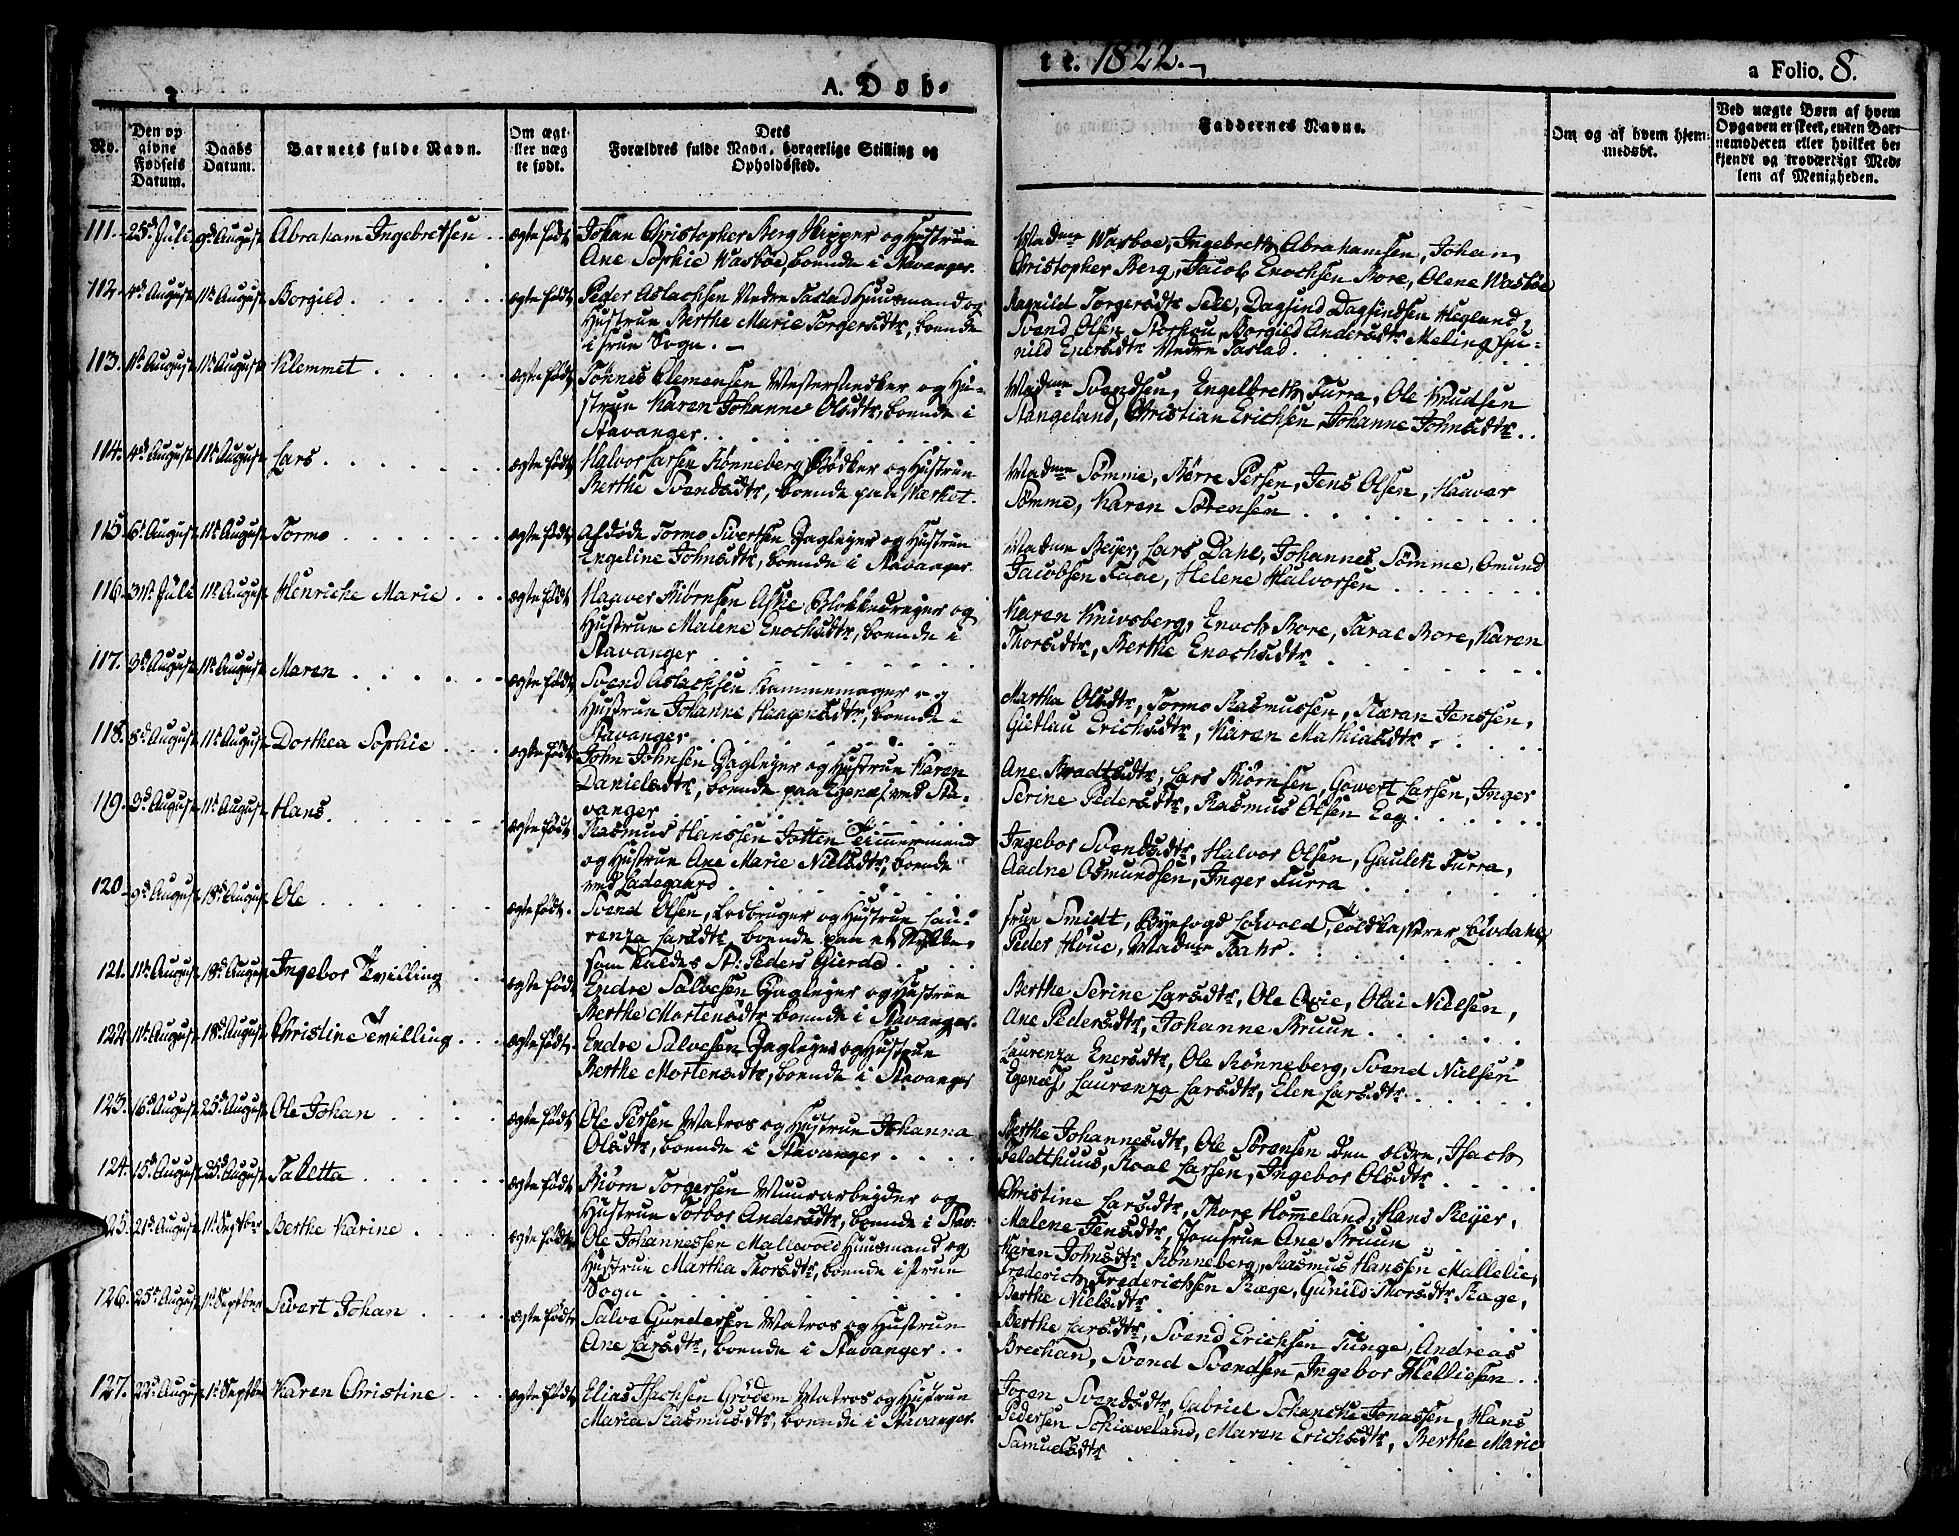 A. Døb-
te. 1822.
a Folio. 8.
No.
Den opgivne Fødsels Datum.
Daabs Datum.
Barnets fulde Navn.
Om ægteller nægte født.
Dets Forældres fulde Navn, borgerlige Stilling og Opholdssted.
Faddernes Navne.
Om og af hvem hjemmedøbt.
Ved nægte Børn af hvem Opgaven er skeet, enten Barnemoderen eller hvilket bekjendt og troværdigt Medlem af Menigheden.
111. 25d Juli 9d August Abraham Ingebretsen ægte født
Johan Christopher Berg Skipper og Hustrue
Ane Sophie Wasbøe, boende i Stavanger.
Madme Wasboe, Ingebreth Abrahamsen, Johan
Christopher Berg, Jacob Enochsen Bore, Olene Wasbøe
112. 4d August 11t August Borgild ægte født
Peder Aslachsen Nedre Tastad Huusmand og
Hustrue Berthe Marie Torgersdtr, boende
i frue Sogn.
Ragnild Torgersdtr Sele, Dagfind Dagfindsen Hegland,
Svend Olsen Storhou, Borgild Andersdtr Meling, Gu-
nild Enersdtr Nedre Tastad.
113. 1t August 11t August Klemmet ægte født
Tønnes Clemensen Mestersnedker og Hu-
strue Karen Johanne Olsdtr, boende i
Stavanger.
Madme Svendsen, Engelbreth Furra, Ole Knudsen
Stangeland, Christian Erichsen, Johanne Johnsdtr.
114. 4d August 11t August Lars ægte født
Halvor Larsen Rønneberg Bødker og Hustrue
Berthe Svendsdtr, boende paa Værket.
Madme Sømme, Børre Persen, Jens Olsen, Haaver
Sømme, Karen Sørensen
115. 6t August 11t August Tormo ægte født
Afdøde Tormo Sivertsen Dagleyer og Hustrue
Engeline Johnsdtr, boende i Stavanger.
Madme Beyer, Lars Dahl, Johannes Sømme, Omund
Jacobsen Faae, Helene Halvorsen
116. 31t Juli 11t August Henriche Marie ægte født
Haaver Biørnsen Aske Blokkedreyer og
Hustrue Malene Enochsdtr, boende i
Stavanger
Karen Knivsberg, Enoch Bore, Taral Bore, Karen
Thorsdtr, Berthe Enochsdtr
117. 3d August 11t August Maren ægte født
Svend Aslachsen Kammemager og
Hustrue Johanne Haagensdtr, boende i
Stavanger
Martha Olsdtr, Tormo Rasmussen, Kæran Jenssen,
Gietlau Erichsdtr, Karen Mathiasdtr
118. 8d August 11t August Dorthea Sophie ægte født
John Johnsen Dagleyer og Hustrue Karen
Danielsdtr, boende paa Egenæs ved Sta-
vanger
Ane Bradtsdtr, Lars Biørnsen, Gowert Larsen, Inger
Serine Pedersdtr, Rasmus Olsen Eeg
119. 3d August 11t August Hans ægte født
Rasmus Hanssen Jotten Tømmermand
og Hustrue Ane Marie Nielsdtr, boende
ved Ladegaard
Ingebor Svendsdtr, Halvor Olsen, Gauleh Furra,
Aadne Osmundsen, Inger Furra
120. 9d August 18d August Ole ægte født
Svend Olsen, Lodbruger og Hustrue Lau-
renza Larsdtr, boende paa et Stykke,
som kaldes St: Peders Gierde
frue Smidt, Byefogd Løwold, Toldkasserer Livdahl,
Peder Houe, Madme Bahr
121. 11t August 18d August Ingebor Tvilling ægte født
Endre Salvesen Dagleyer og Hustrue
Berthe Mortensdtr boende i Stavanger
Berthe Serine Larsdtr, Ole Opie, Olai Nielsen,
Ane Pedersdtr, Johanne Bruun
122. 11t August 18d August Christine Tvilling ægte født
Endre Salvesen Dagleyer og Hustrue
Berthe Mortensdtr, boende i Stavanger
Laurenza Enersdtr, Ole Rønneberg, Svend Nielsen
Egenæs, Laurenza Larsdtr, Elen Larsdtr
123. 16d August 25d August Ole Johan ægte født
Ole Persen Matros og Hustrue Johanna
Olsdtr, boende i Stavanger
Berthe Johannesdtr, Ole Sørensen den ældre, Isach
Feldthuus, Roal Larsen, Ingebor Olsdtr
124. 15d August 25d August Taletta ægte født
Biørn Torgersen Muurarbeyder og
Hustrue Torbor Andersdtr, boende i Stav:
Christine Larsdtr, Thore Homeland, Hans Reyer,
Malene Jensdtr, Jomfrue Ane Bruun
125. 21d August 1t Septber Berthe Karine ægte født
Ole Johannessen Mallevold Huusmand og
Hustrue Martha Thorsdtr, boende i frue
Sogn
Karen Johnsdtr Rønneberg, Rasmus Hanssen Mallelie,
Frederich Frederichsen Ræge, Gunild Thorsdtr Ræge,
Berthe Nielsdtr
126. 25d August 1t Septber Sivert Johan ægte født
Salve Gundersen Matros og Hustrue
Ane Larsdtr, boende i Stavanger
Berthe Larsdtr, Svend Erichsen Tunge, Andreas
Brechan, Svend Svendsen, Ingebor Helliesen
127. 22d August 1t Septber Karen Christine ægte født
Elias Isachsen Grødem Matros og Hustrue
Maria Rasmusdtr, boende i Stavanger
Joren Svendsdtr, Gabriel Schancke Jonassen, Hans
Pedersen Schiæveland, Maren Erichsdtr, Berthe Marie
Samuelsdtr